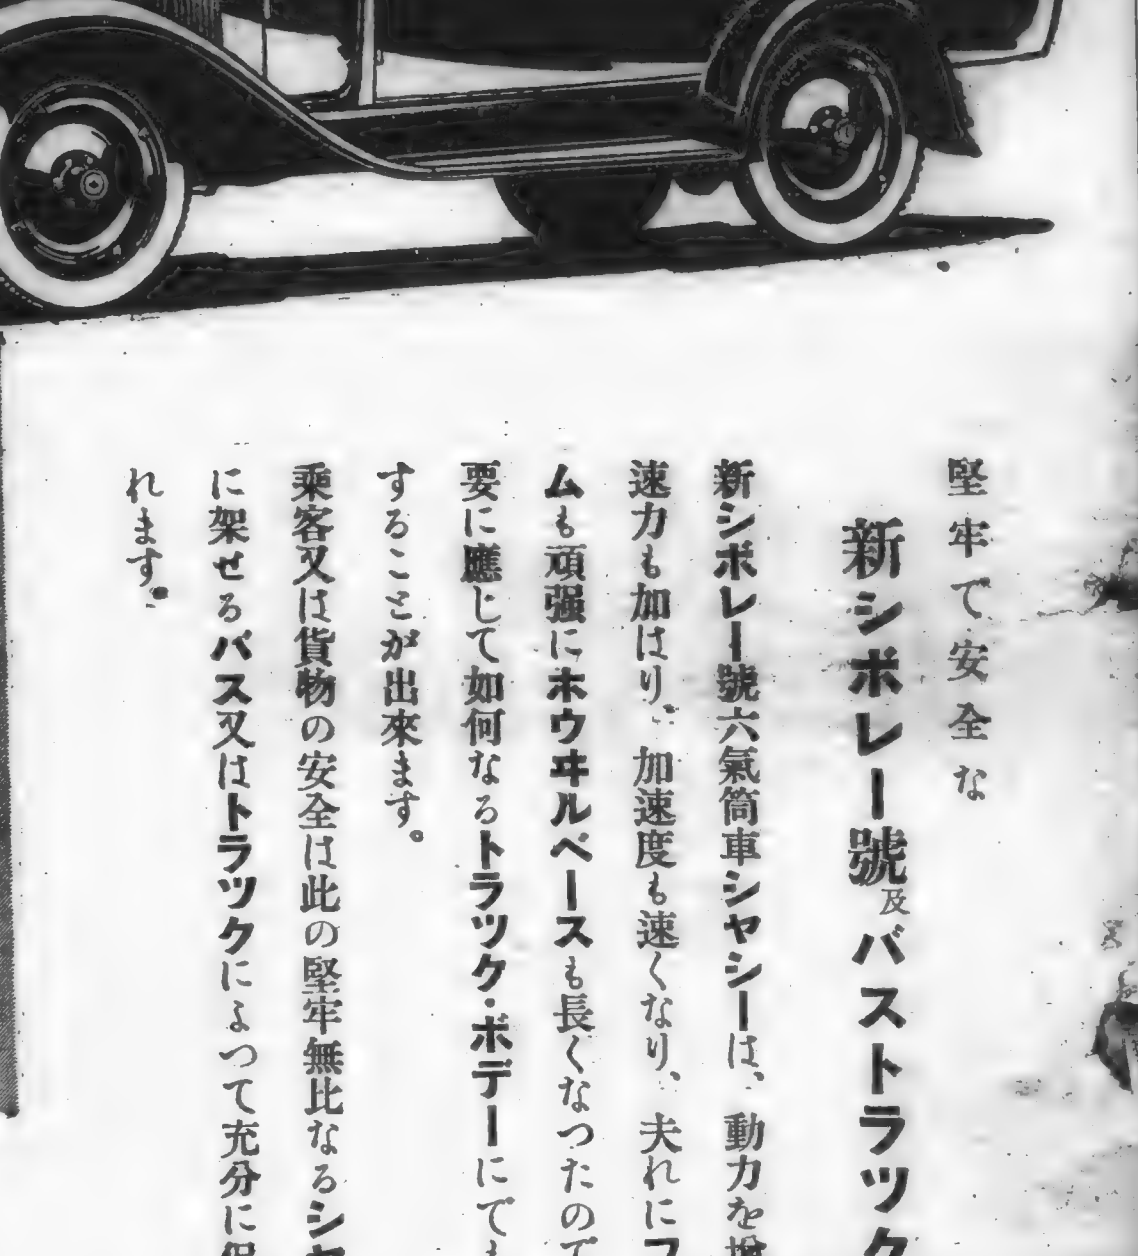 堅牢で安全な
新シボレー號及バストラック
新シボレー號六氣筒車シャシーは、動力を増
速力も加はり、加速度も速くなり、夫れにフ
ムも頑强にホウヰルベースも長くなつたので
要に應じて如何なるトラツク・ボデーにでも
することが出來ます。
乘客又は貨物の安全は此の堅牢無比なるシャ
に架せるバス又はトラツクによつて充分に保
れます。